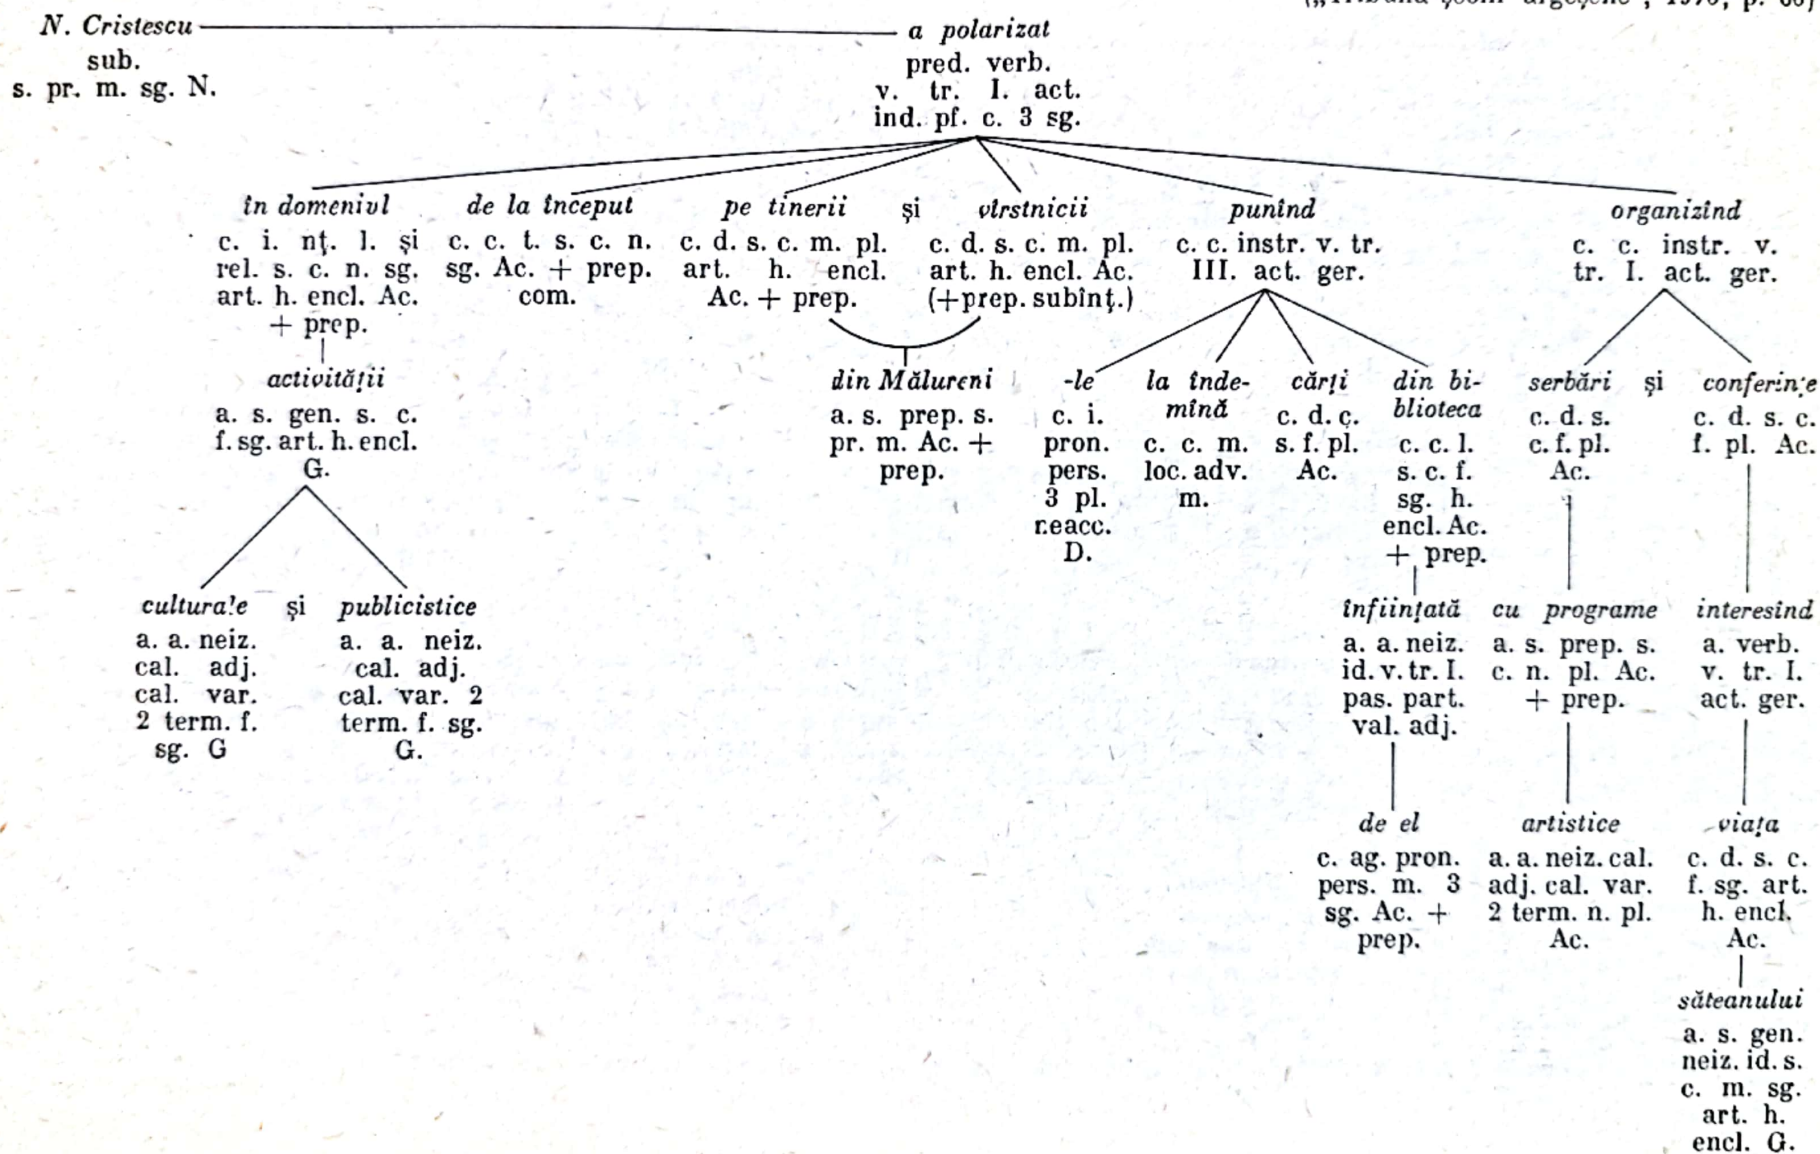 N. Cristescu
sub.
s. pr. m. sg. N.
a polarizat
pred. verb.
v. tr. I. act.
ind. pf. c. 3 sg.
în domeniul
c. i. nţ. l. şi
rel. s. c. n. sg.
art. h. encl. Ac.
+ prep.
de la început
c. c. t. s. c. n.
sg. Ac. + prep.
com.
pe tinerii
c. d. s. c. m. pl.
art. h. encl.
Ac. + prep.
şi
vîrstnicii
c. d. s. c. m. pl.
art. h. encl. Ac.
(+prep. subînţ.)
punînd
c. c. instr. v. tr.
III. act. ger.
organizînd
c. c. instr. v.
tr. I. act. ger.
activităţii
a. s. gen. s. c.
f. sg. art. h. encl.
G.
din Mălureni
a. s. prep. s.
pr. m. Ac. +
prep.
-le
c. i.
pron.
pers.
3 pl.
neacc.
D.
la înde-
mînă
c. c. m.
loc. adv.
m.
cărţi
c. d. c.
s. f. pl.
Ac.
din bi-
blioteca
c. c. l.
s. c. f.
sg. h.
encl. Ac.
+ prep.
serbări
c. d. s.
c. f. pl.
Ac.
şi
conferinţe
c. d. s. c.
f. pl. Ac.
culturale
a. a. neiz.
cal. adj.
cal. var.
2 term. f.
sg. G
şi
publicistice
a. a. neiz.
cal. adj.
cal. var. 2
term. f. sg.
G.
înfiinţată
a. a. neiz.
id. v. tr. I.
pas. part.
val. adj.
cu programe
a. s. prep. s.
c. n. pl. Ac.
+ prep.
interesînd
a. verb.
v. tr. I.
act. ger.
de el
c. ag. pron.
pers. m. 3
sg. Ac. +
prep.
artistice
a. a. neiz. cal.
adj. cal. var.
2 term. n. pl.
Ac.
viaţa
c. d. s. c.
f. sg. art.
h. encl.
Ac.
săteanului
a. s. gen.
neiz. id. s.
c. m. sg.
art. h.
encl. G.